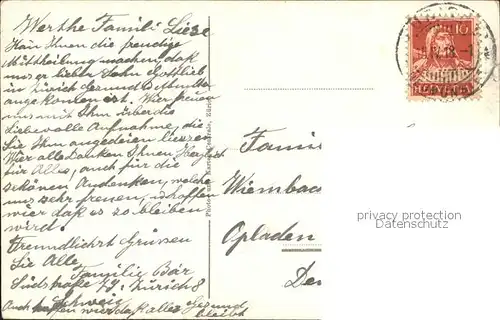 Werthe Famili Liese
Kan Ihnen die freudige
Mittheilung machen, dass
unser lieber Sohn Gottlieb
in Zürich Gesund & Munter
angekommen ist. Wier freuen
uns mit Ihm über die
Liebevolle Aufnahme, die
Sie Ihm angedeien liessen
Wier alle danken Ihnen Herzlich
für Alles, auch für die
schönen Andenken, welche
uns sehr freuen, u. hoffen
wier daß es so bleiben
wird.
Freundlichst Grüssen
Sie Alle
Familie Bär
Südstraße Zürich 8
Schweiz
Auch hoffen wier daß alles Gesund
bleibt
Famil
Wiembac
Opladen
De
privacy protection
watermark